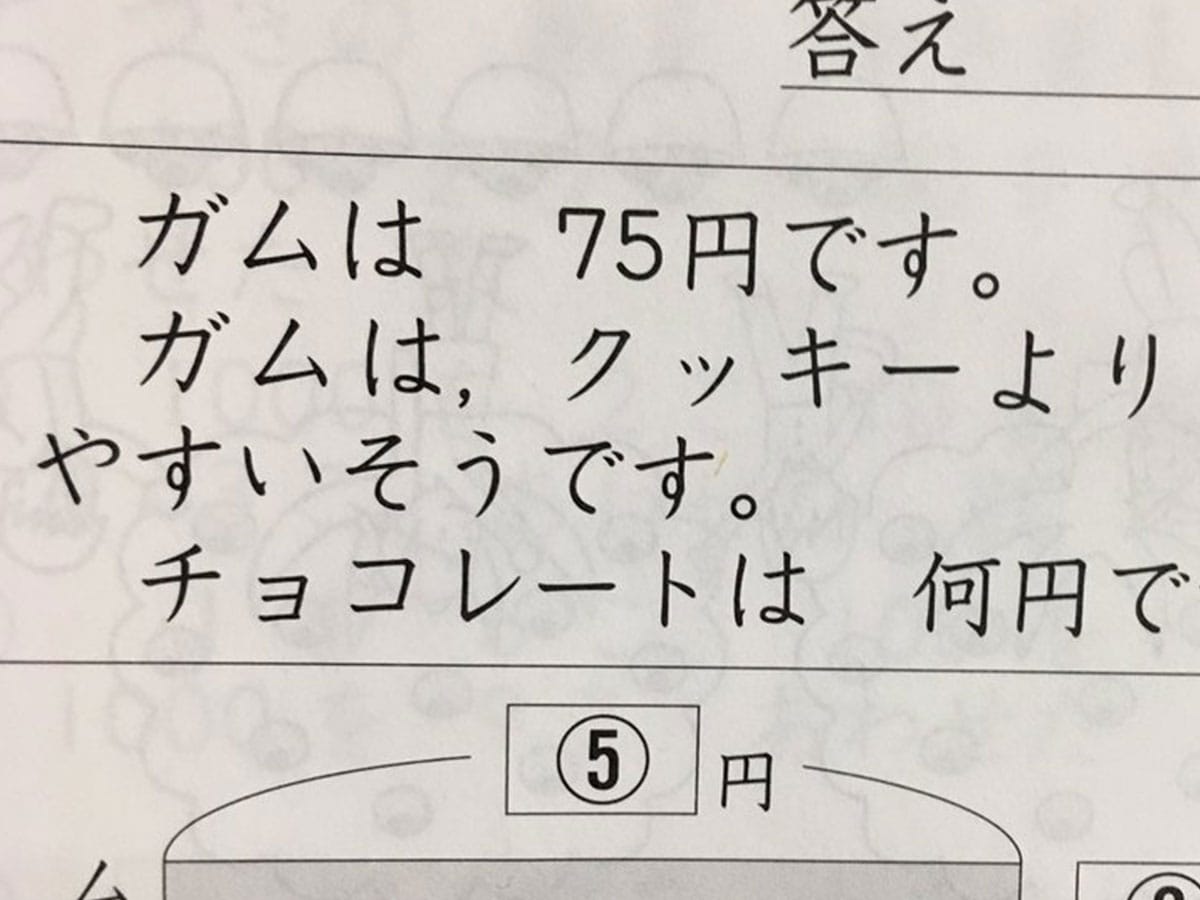 答え
ガムは　75円です。
ガムは，クッキーより
やすいそうです。
チョコレートは　何円で
⑤円
ム